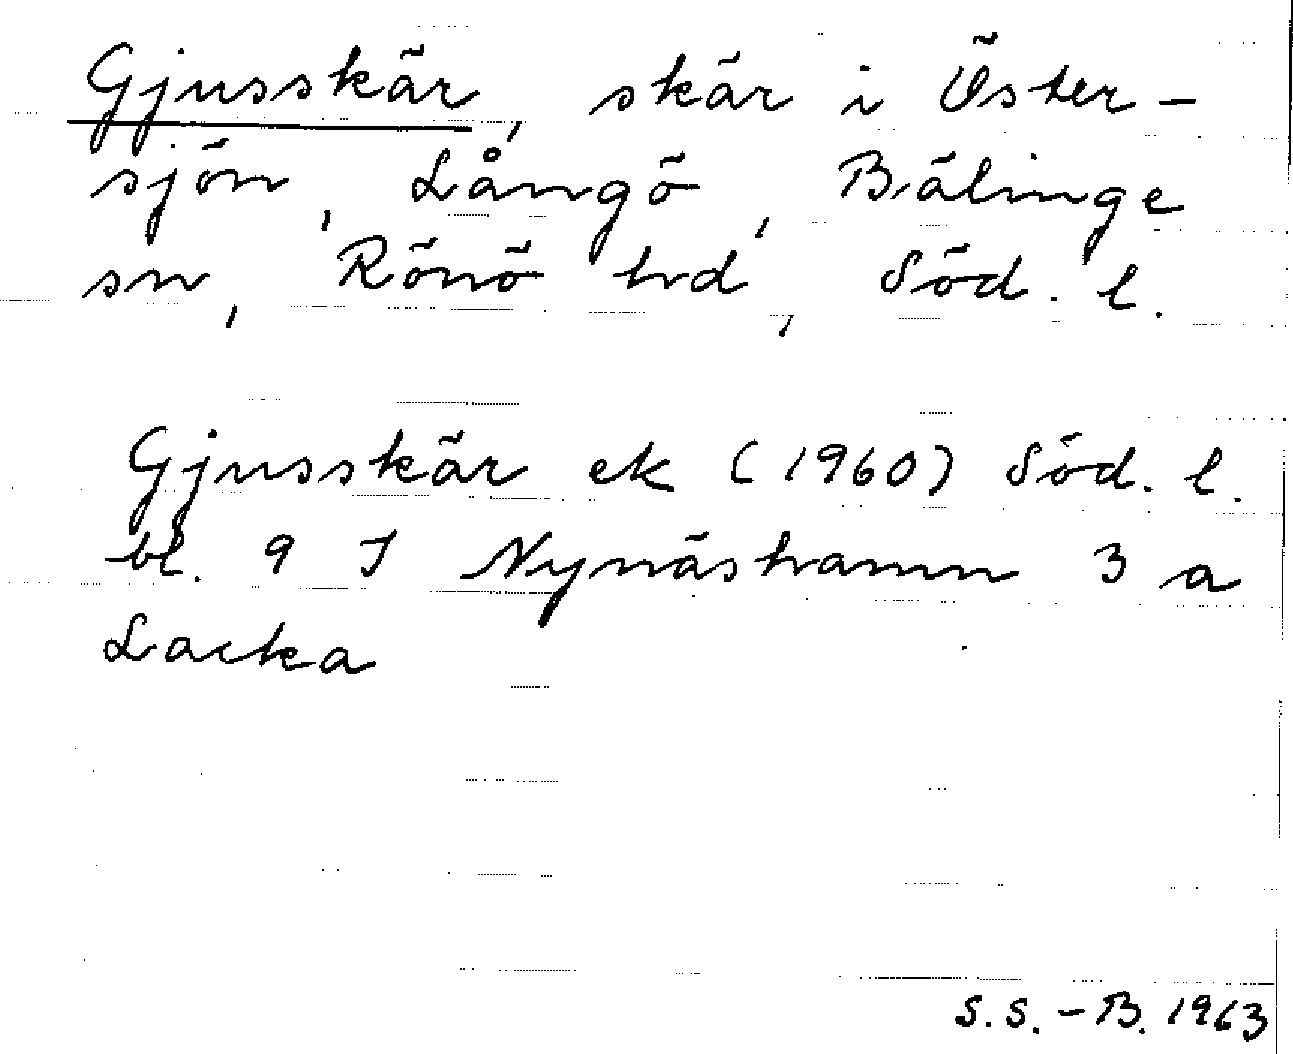 Gjusskär, skär i Öster-
sjön, Långö, Bälinge
sn, Rönö hd, Söd. l.
Gjusskär ek (1960) Söd. l.
bl. 9 I Nynäshamn 3 a
Lacka
S.S.-B. 1963